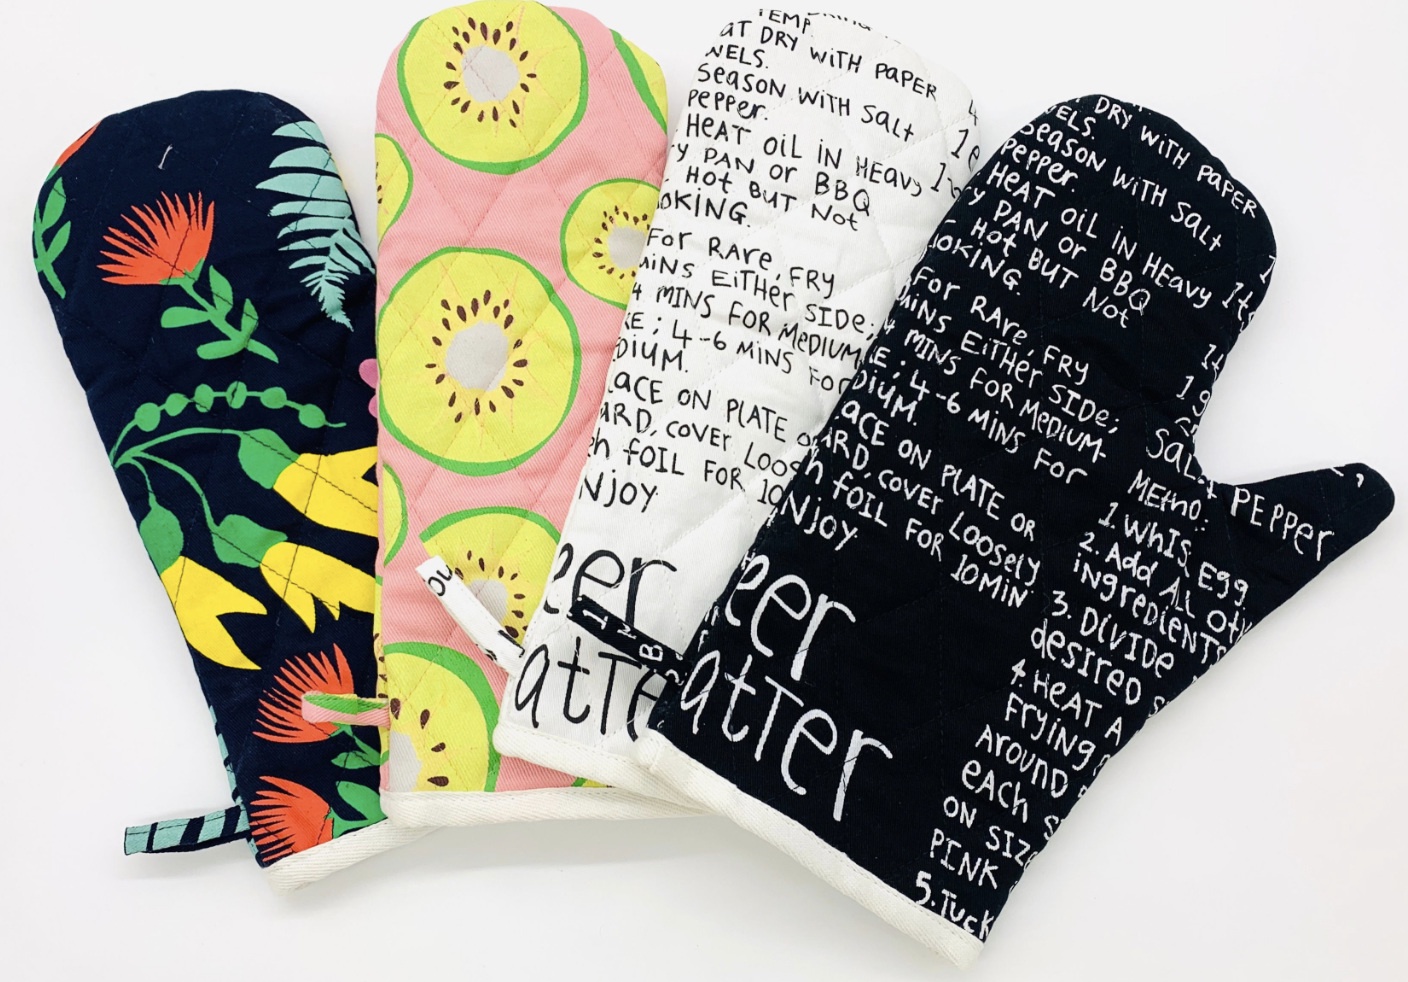 TEMP
AT DRY WITH PAPER
WELS.
Season WITH Salt
Pepper.
HEAT OIL IN HEAVY
Y PAN or BBQ
HOT BUT NOT
OKING.
For Rare, FRY
MINS EITHER SIDE;
4 MINS FOR MEDIUM
KE; 4-6 MINS For
DIUM.
LACE ON PLATE O
ARD, COVER LOOS
h FOIL FOR 10
NJOY
eer
atTe
DRY WITH PAPER
ELS.
Season WITH Salt
Pepper.
HEAT OIL IN HEAVY
Y PAN or BBQ
HOT BUT NOT
OKING.
For Rare, FRY
MINS EITHER SIDE;
4 MINS FOR MEDIUM-
KE; 4-6 MINS For
DIUM.
LACE ON PLATE OR
ARD, COVER LOOSELY
h FOIL FOR 10MIN
NJOY
eer
atTer
SaLt PEPPer
METHO:
1. WHIS, Egg
2. Add ALL Oth
ingredients
3. DIVIDE
desired s
4. HEAT A
Frying
Around
each s
ON SIZE
PINK
5. Tuck